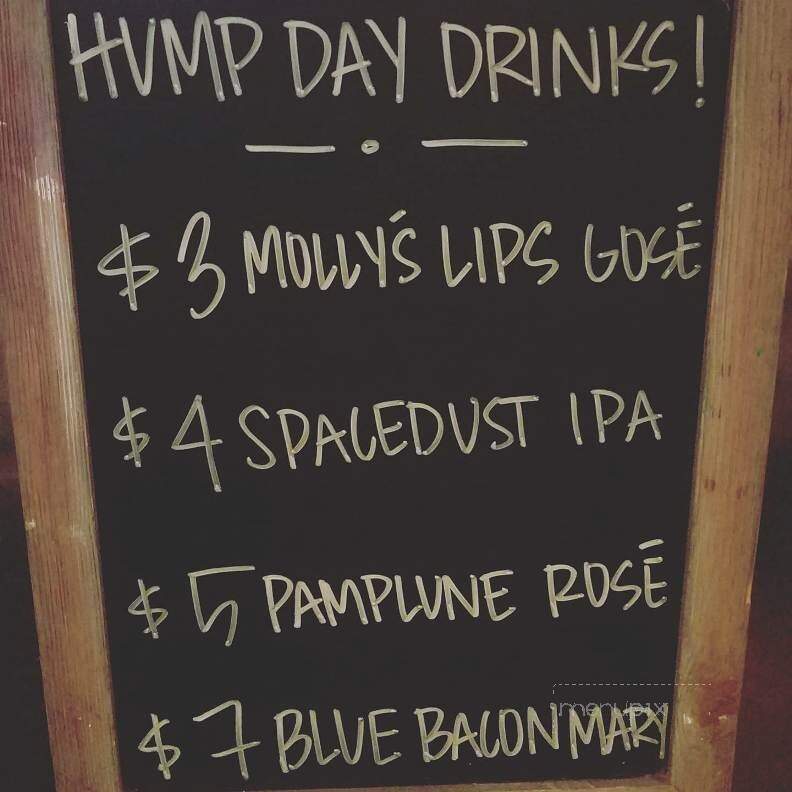 HUMP DAY DRINKS!
$3 MOLLY'S LIPS GOSÉ
$4 SPACEDUST IPA
$5 PAMPLUNE ROSÉ
$7 BLUE BACON MARY
menupix